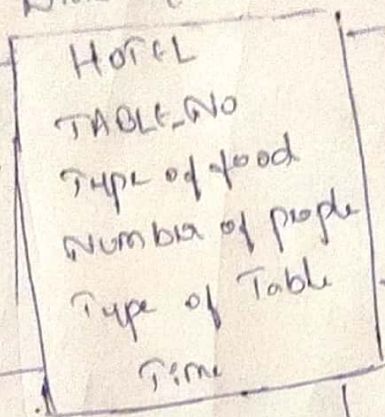 HOTEL
TABLE_NO
Type of food
Number of people
Type of Table
Time